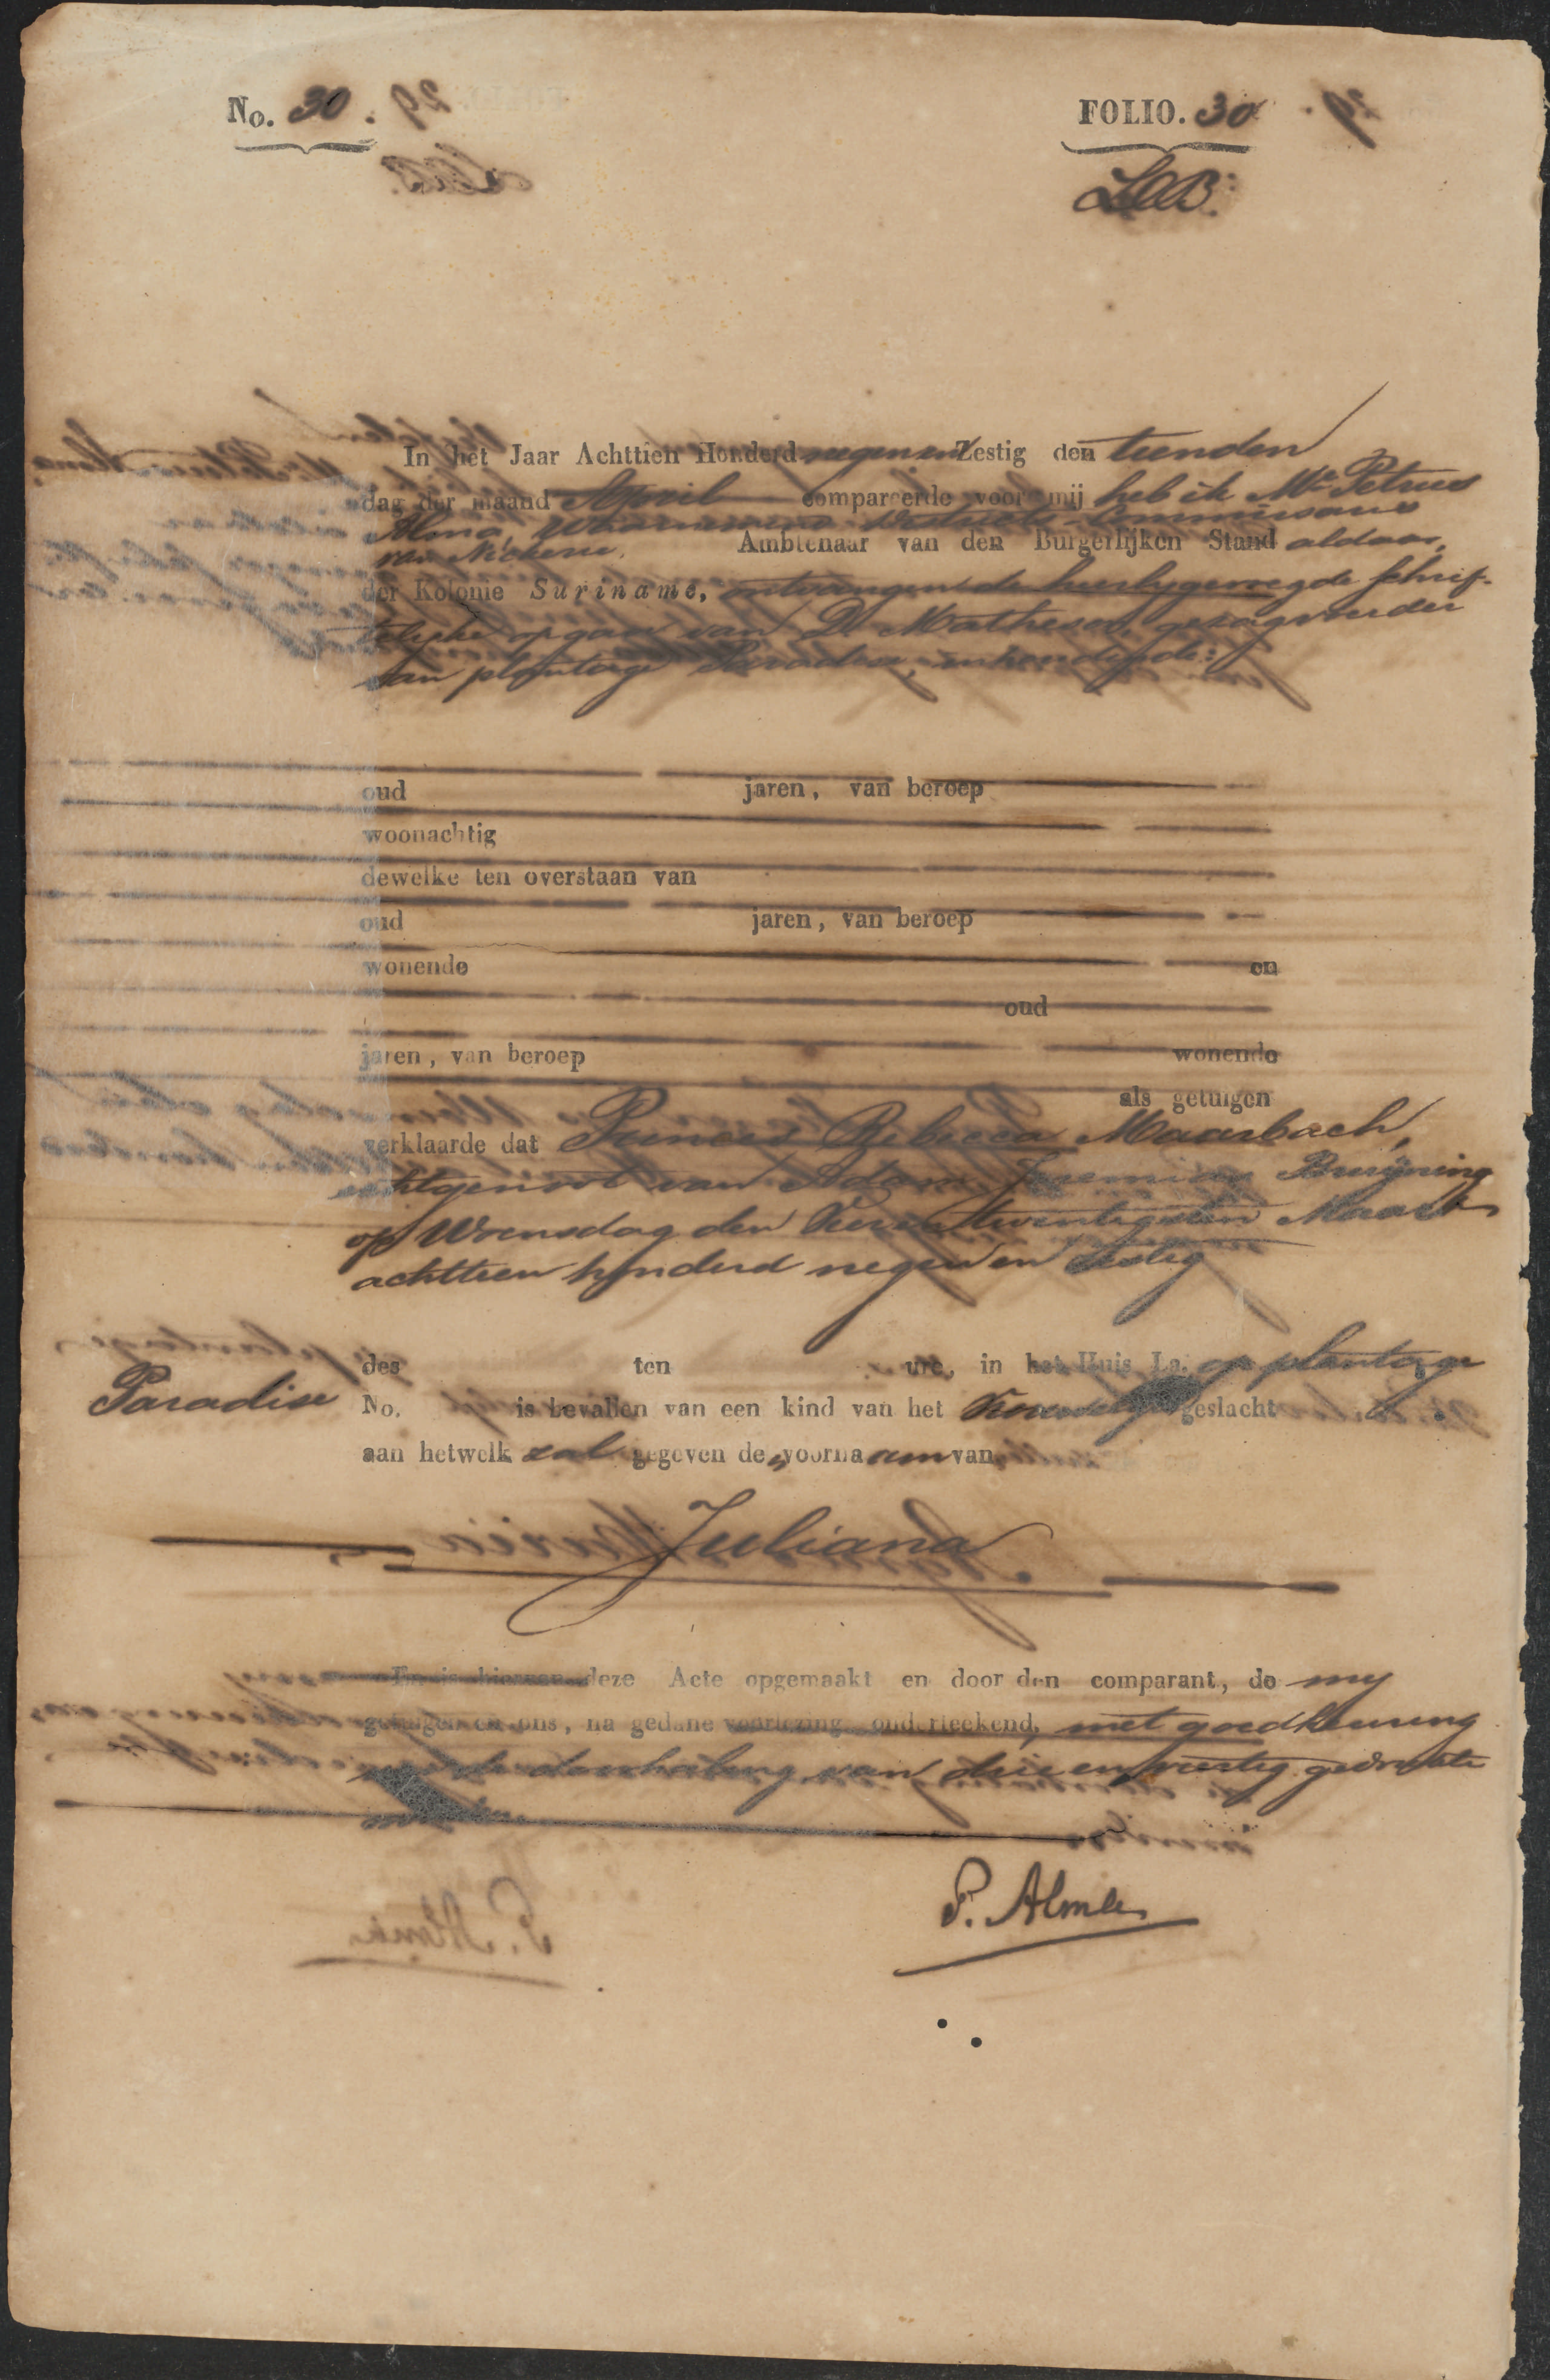 No. 30. FOLIO. 30
In het Jaar Achttien Honderd negen en Zestig den tienden
dag der maand April compareerde voor mij heb ik Mr. Petrus
Alma, Waarnemend Districts-Commissaris
van Nickerie, Ambtenaar van den Burgerlijken Stand aldaar,
der Kolonie Suriname, ontvangen de hierbijgevoegde schrif-
telijke opgaaf van D. Matheson, gezagvoerder
van plantage Paradise, inhoudende:
oud jaren, van beroep
woonachtig
dewelke ten overstaan van
oud jaren, van beroep
wonende en
oud
jaren, van beroep wonende
als getuigen
verklaarde dat Rebecca Maarbach,
echtgenoot van Adam Jeremias Bruijning
op Woensdag den twintigsten Maart
achttien honderd negen en zestig
des ten ure, in het Huis La. op plantage
Paradise No. is bevallen van een kind van het Vrouwelijk geslacht
aan hetwelk zal gegeven de voornaam van
Juliana
En is hiervan deze Acte opgemaakt en door den comparant, de my
getuigen en ons, na gedane voorlezing onderteekend, met goedkeuring
van de doorhaling van drie en veertig gedrukte
woorden.
P. Alma